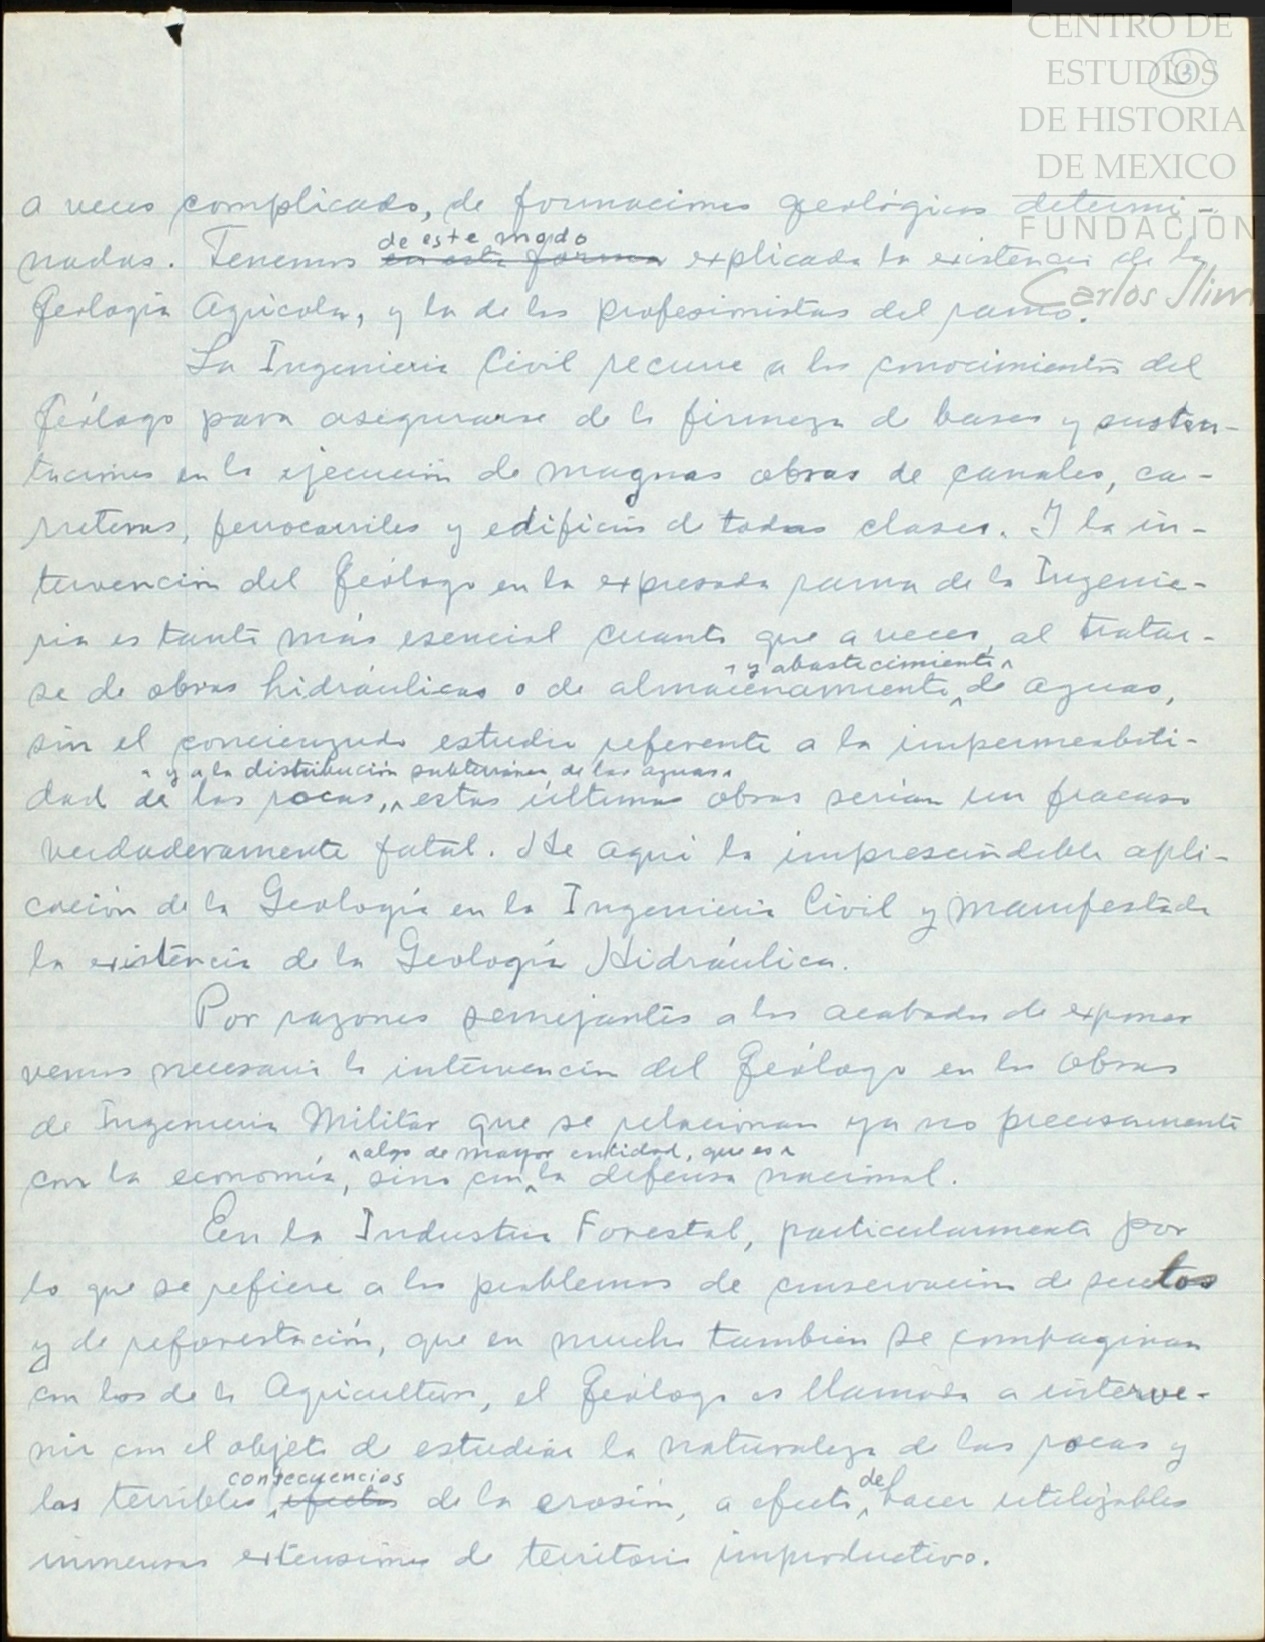 CENTRO DE
ESTUDIOS
DE HISTORIA
DE MEXICO
FUNDACIÓN
Carlos Slim
a veces complicado, de formaciones geológicas determi-
nadas. Tenemos de este modo en esta forma explicada la existencia de la
Geología Agrícola, y la de los profesionistas del ramo.
La Ingenieria Civil recurre a los conocimientos del
Geólogo para asegurarse de la firmeza de bases y susten-
taciones en la ejecución de magnas obras de canales, ca-
rreteras, ferrocarriles y edificios de todas clases. Y la in-
tervención del Geólogo en la expresada rama de la Ingenie-
ria es tanto más esencial cuanto que a veces, al tratar-
se de obras hidráulicas o de almacenamiento y abastecimiento de aguas,
sin el concienzudo estudio referente a la impermeabili-
dad de las rocas, y a la distribución subterránea de las aguas, estas últimas obras serian un fracaso
verdaderamente fatal. He aqui la imprescindible apli-
cación de la Geología en la Ingenieria Civil y manifestada
la existencia de la Geología Hidráulica.
Por razones semejantes a las acabadas de exponer
vemos necesaria la intervención del Geólogo en las obras
de Ingenieria Militar que se relacionan ya no precisamente
con la economía, sino con algo de mayor entidad, que es la defensa nacional.
En la Industria Forestal, particularmente por
lo que se refiere a los problemas de conservación de suelos
y de reforestación, que en mucho tambien se compaginan
con los de la Agricultura, el Geólogo es llamado a interve-
nir con el objeto de estudiar la naturaleza de las rocas y
las terribles consecuencias efectos de la erosión, a efecto de hacer utilizables
inmensas extensiones de territorio improductivo.